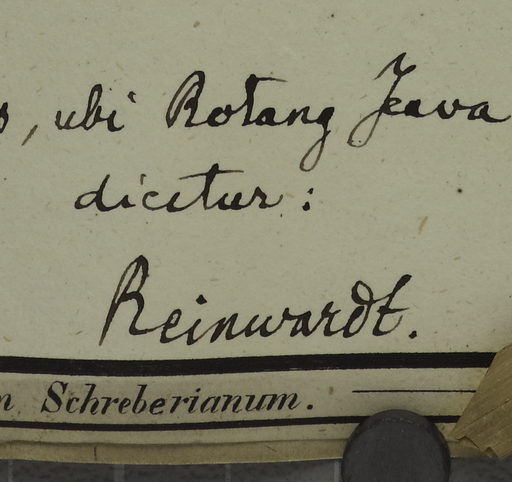 , ubi Rotang Java
dicitur:
Reinwardt.
Schreberianum.